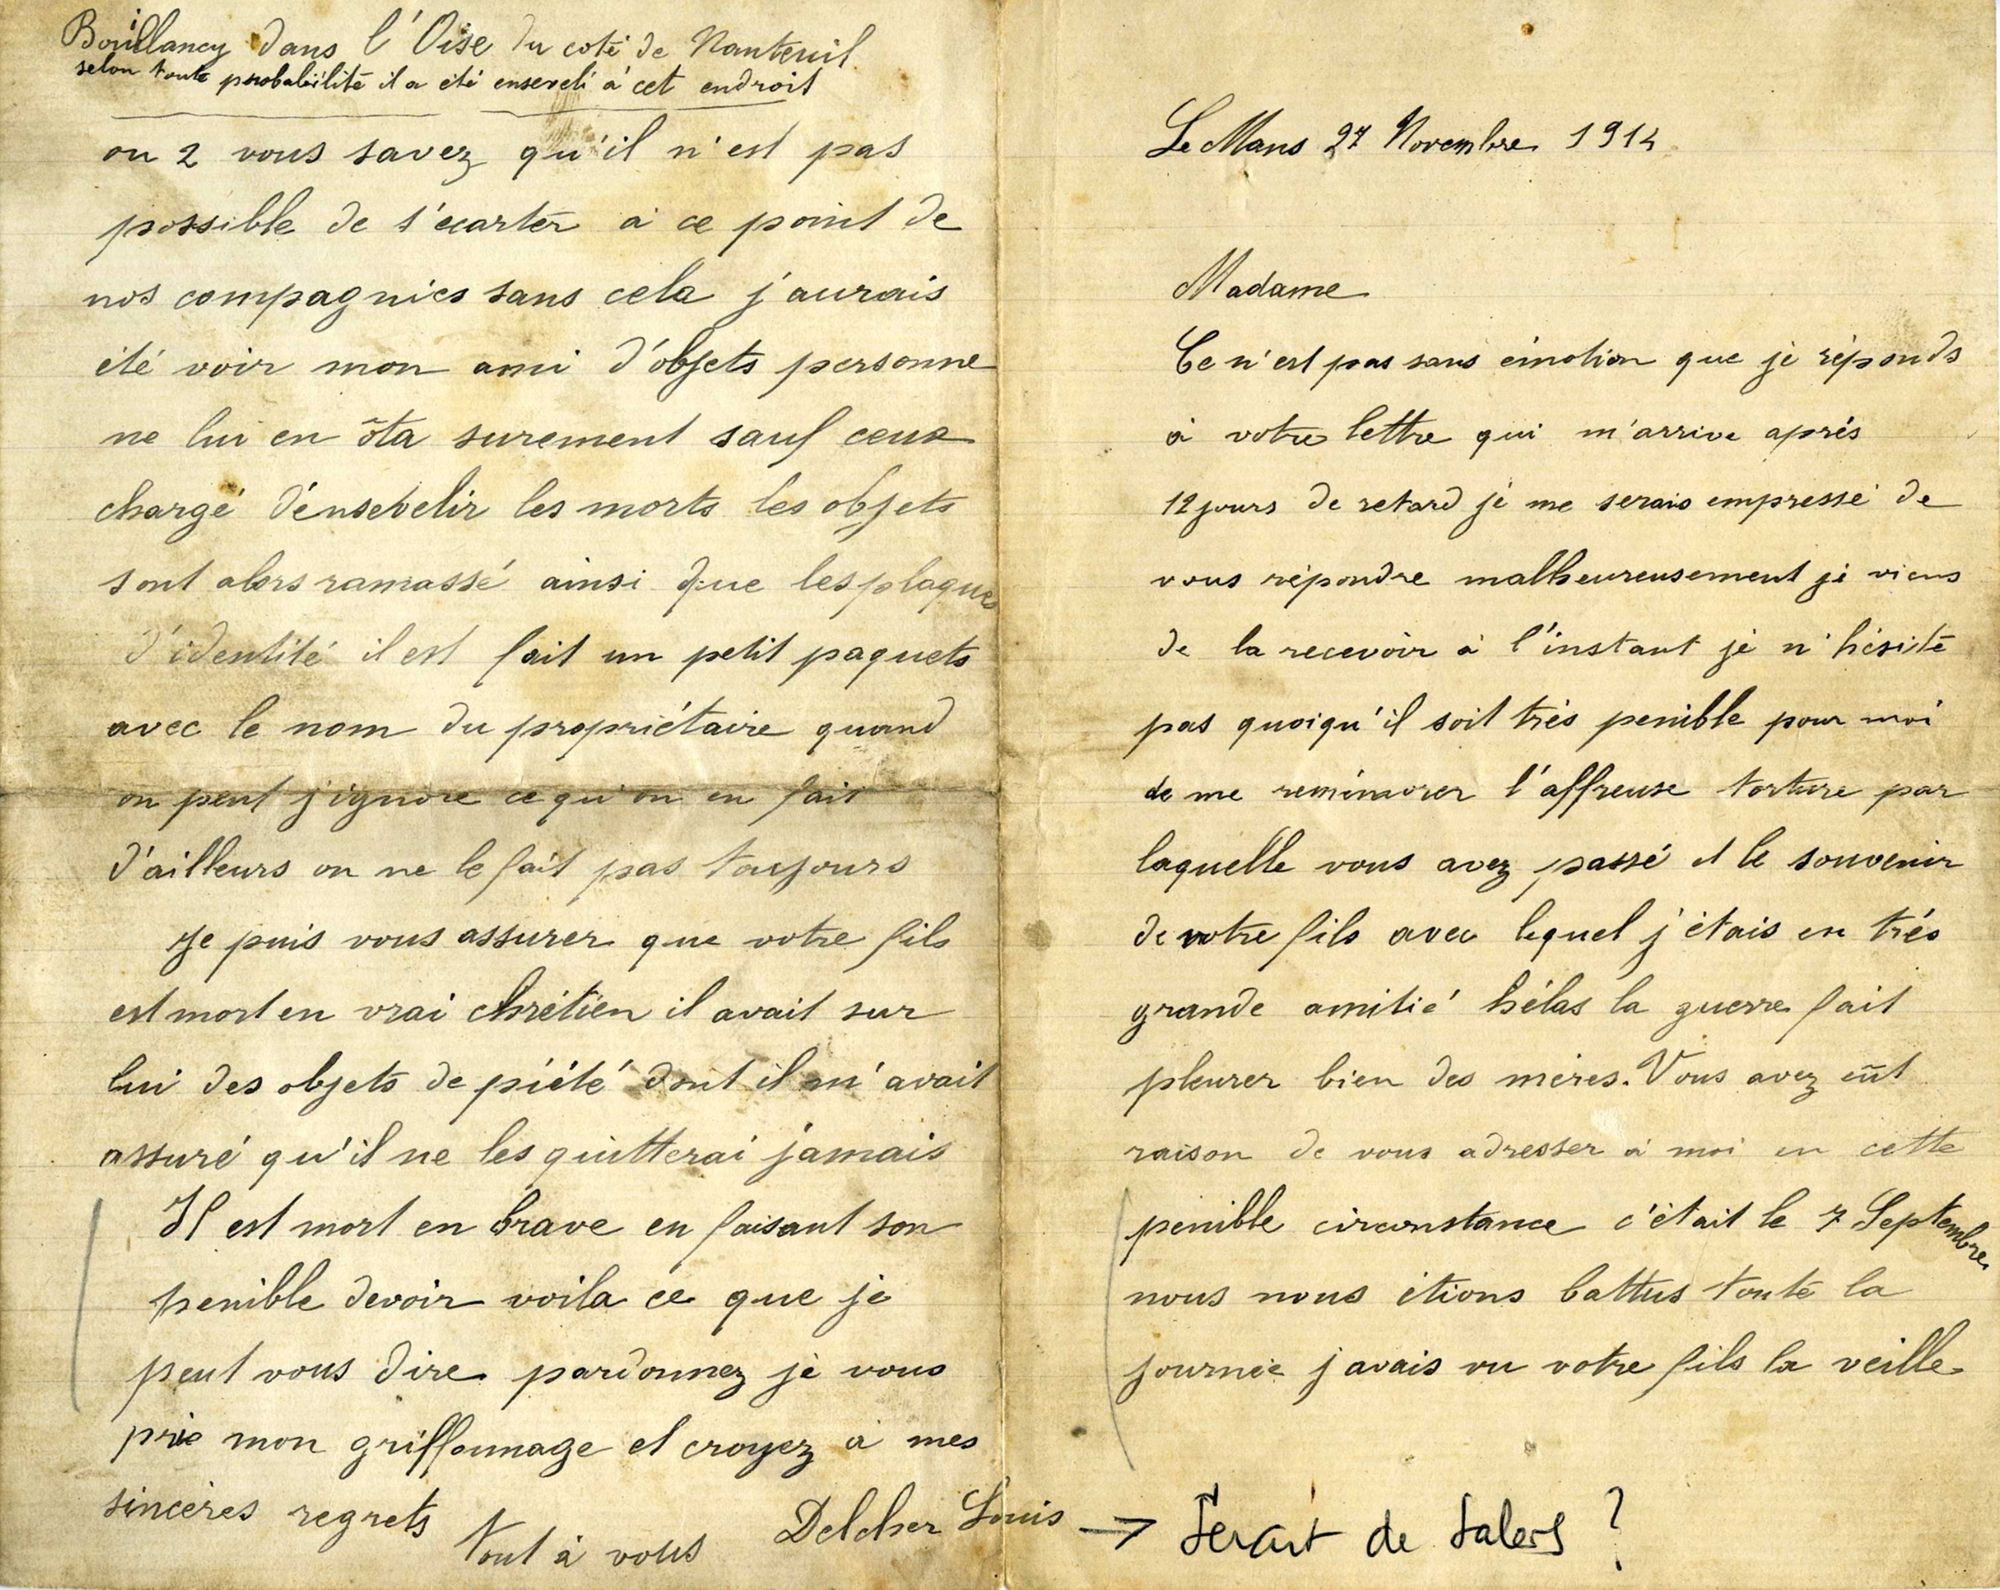 Bouillancy dans l'Oise du coté de Nanteuil
selon toute probabilité il a été enseveli à cet endroit
ou 2 vous savez qu'il n'est pas
possible de s'ecarter à ce point de
nos compagnies sans cela j'aurais
été voir mon ami d'objets personne
ne lui en ôta surement sauf ceux
chargé d'ensevelir les morts les objets
sont alors ramassé ainsi que les plaques
d'identité il est fait un petit paquets
avec le nom du propriétaire quand
on peut j'ignore ce qu'on en fait
d'ailleurs on ne le fait pas toujours
Je puis vous assurer que votre fils
est mort en vrai chrétien il avait sur
lui des objets de piété dont il m'avait
assuré qu'il ne les quitterai jamais
Il est mort en brave en faisant son
penible devoir voila ce que je
peut vous dire pardonnez je vous
prie mon griffonnage et croyez à mes
sincères regrets
tout à vous Delcher Louis
Le Mans 27 Novembre 1914
Madame
Ce n'est pas sans émotion que je réponds
à votre lettre qui m'arrive aprés
12 jours de retard je me serais empressé de
vous répondre malheureusement je viens
de la recevoir à l'instant je n'hésite
pas quoiqu'il soit trés penible pour moi
de me remémorer l'affreuse torture par
laquelle vous avez passé et le souvenir
de votre fils avec lequel j'étais en trés
grande amitié hélas la guerre fait
pleurer bien des mères. Vous avez eût
raison de vous adresser à moi en cette
penible circonstance c'était le 7 Septembre
nous nous étions battus toute la
journée j'avais vu votre fils la veille
→ Serait de Salers ?